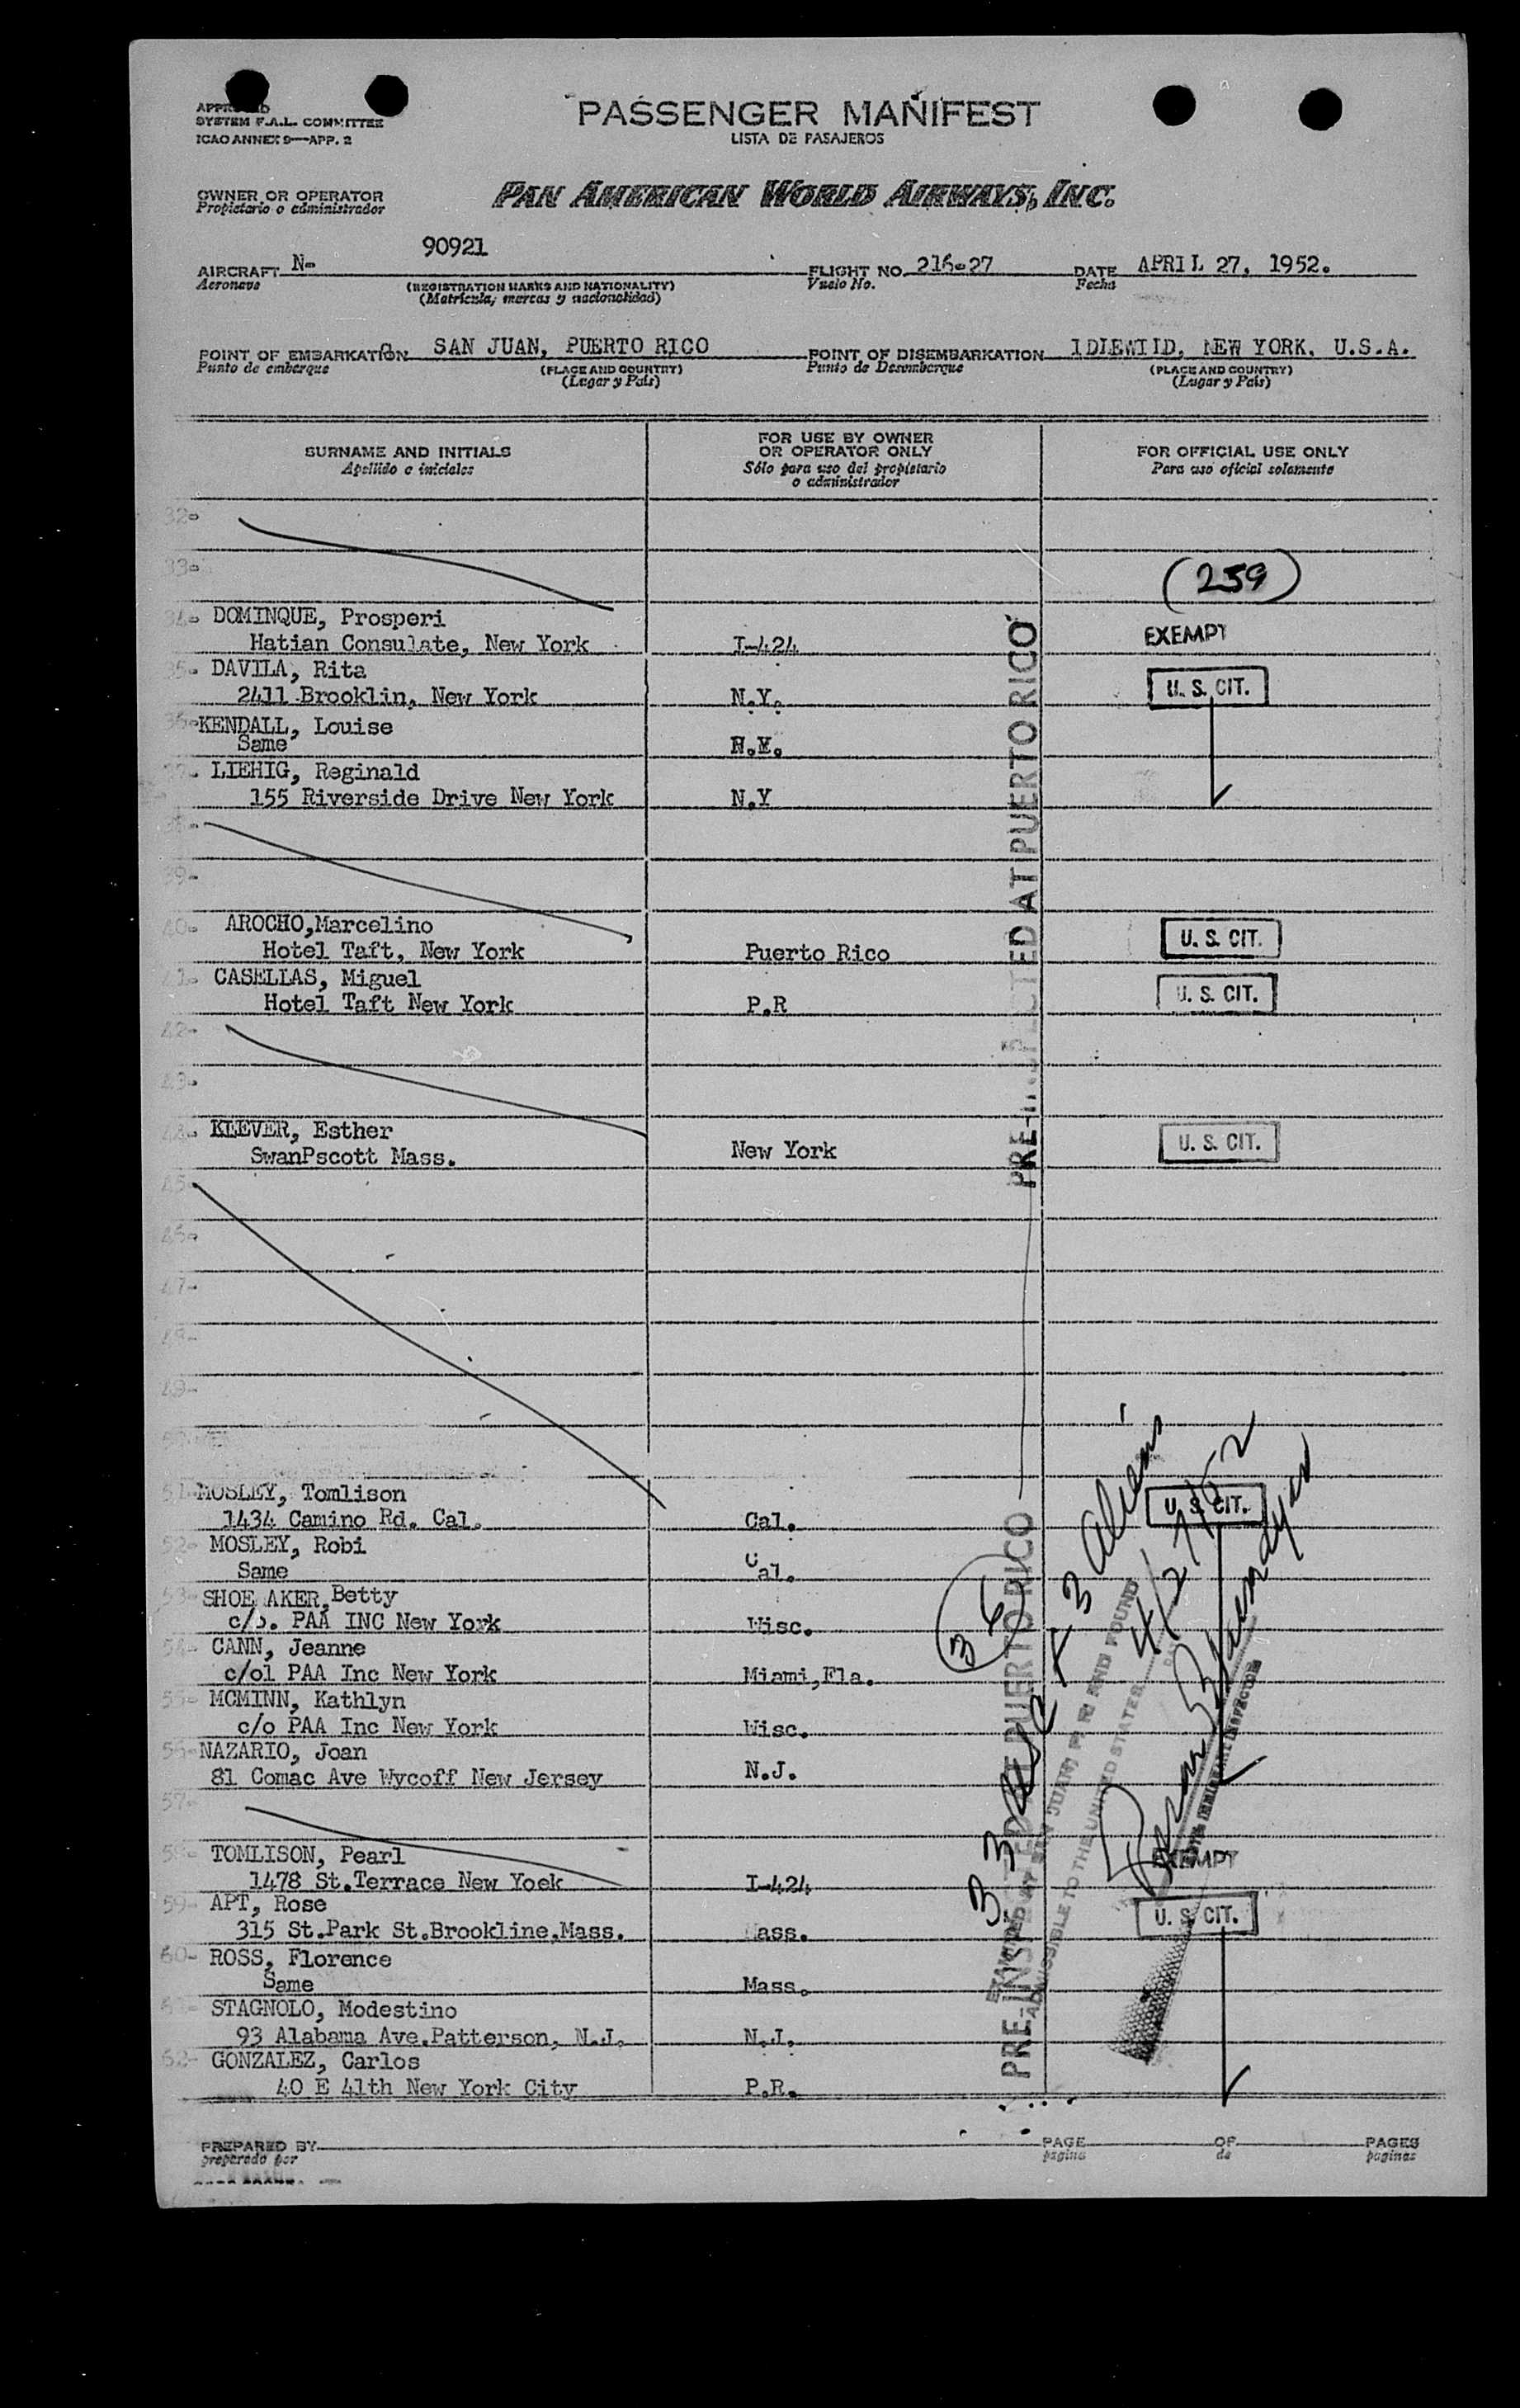 APPROVED
SYSTEM F.A.L. COMMITTEE
ICAO ANNEX 9—APP. 2
PASSENGER MANIFEST
LISTA DE PASAJEROS
OWNER OR OPERATOR
Propietario o administrador
PAN AMERICAN WORLD AIRWAYS, INC.
AIRCRAFT N- 90921
Aeronave
(REGISTRATION MARKS AND NATIONALITY)
(Matrícula, marcas y nacionalidad)
FLIGHT NO. 216-27
Vuelo No.
DATE APRIL 27, 1952.
Fecha
POINT OF EMBARKATION SAN JUAN, PUERTO RICO
Punto de embarque
(PLACE AND COUNTRY)
(Lugar y País)
POINT OF DISEMBARKATION IDLEWILD, NEW YORK, U.S.A.
Punto de Desembarque
(PLACE AND COUNTRY)
(Lugar y País)
SURNAME AND INITIALS
Apellido e iniciales
FOR USE BY OWNER
OR OPERATOR ONLY
Sólo para uso del propietario
o administrador
FOR OFFICIAL USE ONLY
Para uso oficial solamente
32-
33-
(259)
34- DOMINQUE, Prosperi
Hatian Consulate, New York I-424 EXEMPT
35- DAVILA, Rita
2411 Brooklin, New York N.Y. U. S. CIT.
36- KENDALL, Louise
Same N.Y.
37- LIEHIG, Reginald
155 Riverside Drive New York N.Y
38-
39-
40- AROCHO,Marcelino
Hotel Taft, New York Puerto Rico U. S. CIT.
41- CASELLAS, Miguel
Hotel Taft New York P.R U. S. CIT.
42-
43-
44- KLEVER, Esther
SwanPscott Mass. New York U. S. CIT.
PRE-INSPECTED AT PUERTO RICO
45-
46-
47-
48-
49-
50-
51- MOSLEY, Tomlison
1434 Camino Rd. Cal. Cal. U. S. CIT.
52- MOSLEY, Robi
Same Cal.
53- SHOE AKER,Betty
c/o. PAA INC New York Wisc.
54- CANN, Jeanne
c/o1 PAA Inc New York Miami,Fla.
55- MCMINN, Kathlyn
c/o PAA Inc New York Wisc.
56- NAZARIO, Joan
81 Comac Ave Wycoff New Jersey N.J.
57-
58- TOMLISON, Pearl
1478 St.Terrace New Yoek I-424 EXEMPT
59- APT, Rose
315 St.Park St.Brookline,Mass. Mass. U. S. CIT.
60- ROSS, Florence
Same Mass.
61- STAGNOLO, Modestino
93 Alabama Ave.Patterson, N.J. N.J.
62- GONZALEZ, Carlos
40 E 41th New York City P.R.
PRE-INSPECTED AT PUERTO RICO
36
33
3 aliens
EXAMINED AT SAN JUAN, P. R. AND FOUND
ADMISSIBLE TO THE UNITED STATES
4/27/52
IMMIGRANT INSPECTOR
PREPARED BY
preparado por
PAGE OF PAGES
página de páginas